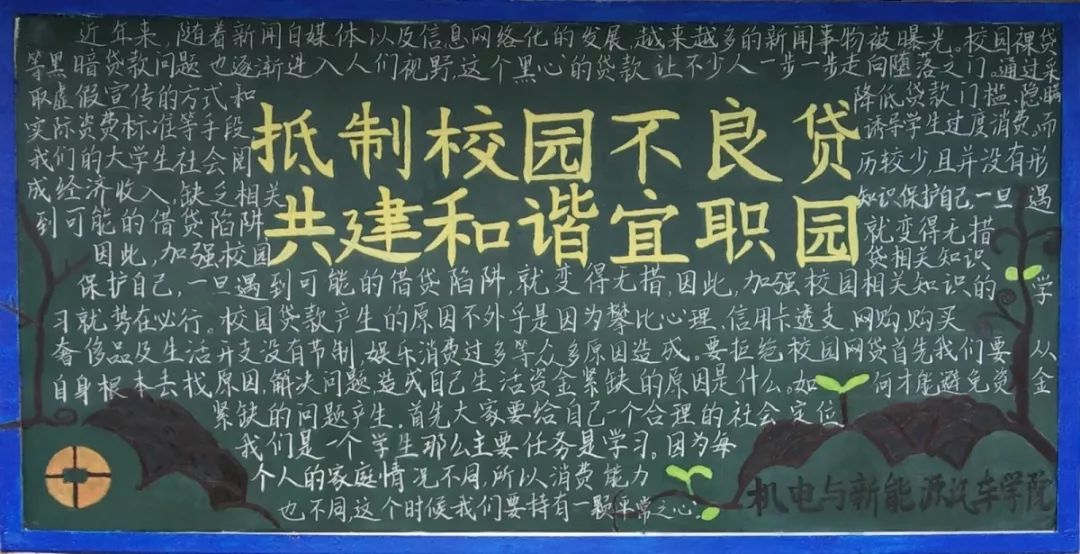 近年来,随着新闻自媒体以及信息网络化的发展,越来越多的新闻事物被曝光。校园裸贷
等黑暗贷款问题也逐渐进入人们视野,这个黑心的贷款让不少人一步一步走向堕落之门。通过采
取虚假宣传的方式和 降低贷款门槛,隐瞒
实际资费标准等手段 诱导学生过度消费。而
我们的大学生社会阅 历较少,且并没有形
成经济收入,缺乏相关 知识保护自己一旦遇
到可能的借贷陷阱 就变得无措
因此,加强校园 贷相关知识
抵制校园不良贷
共建和谐宜职园
保护自己,一旦遇到可能的借贷陷阱,就变得无措,因此,加强校园相关知识的 学
习就势在必行。校园贷款产生的原因不外乎是因为攀比心理、信用卡透支、网购,购买
奢侈品及生活开支没有节制,娱乐消费过多等众多原因造成。要拒绝校园网贷首先我们要 从
自身根本去找原因,解决问题,造成自己生活资金紧缺的原因是什么。如 何才能避免资 金
紧缺的问题产生,首先大家要给自己一个合理的社会定位
我们是一个学生那么主要任务是学习。因为每
个人的家庭情况不同,所以消费能力
也不同,这个时候我们要持有一颗平常之心。
机电与新能源汽车学院